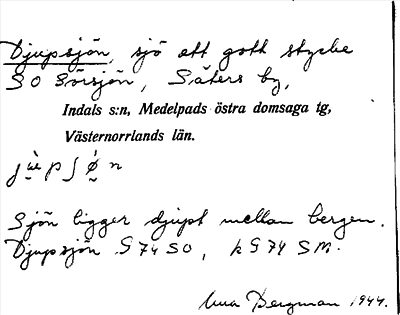 Djupsjön, sjö ett gott stycke
SO Sörsjön, Säters by,
Indals s:n, Medelpads östra domsaga tg,
Västernorrlands län.
Sjön ligger djupt mellan bergen.
Djupsjön G 74 SO, k G 74 SM.
Bergman 1944.